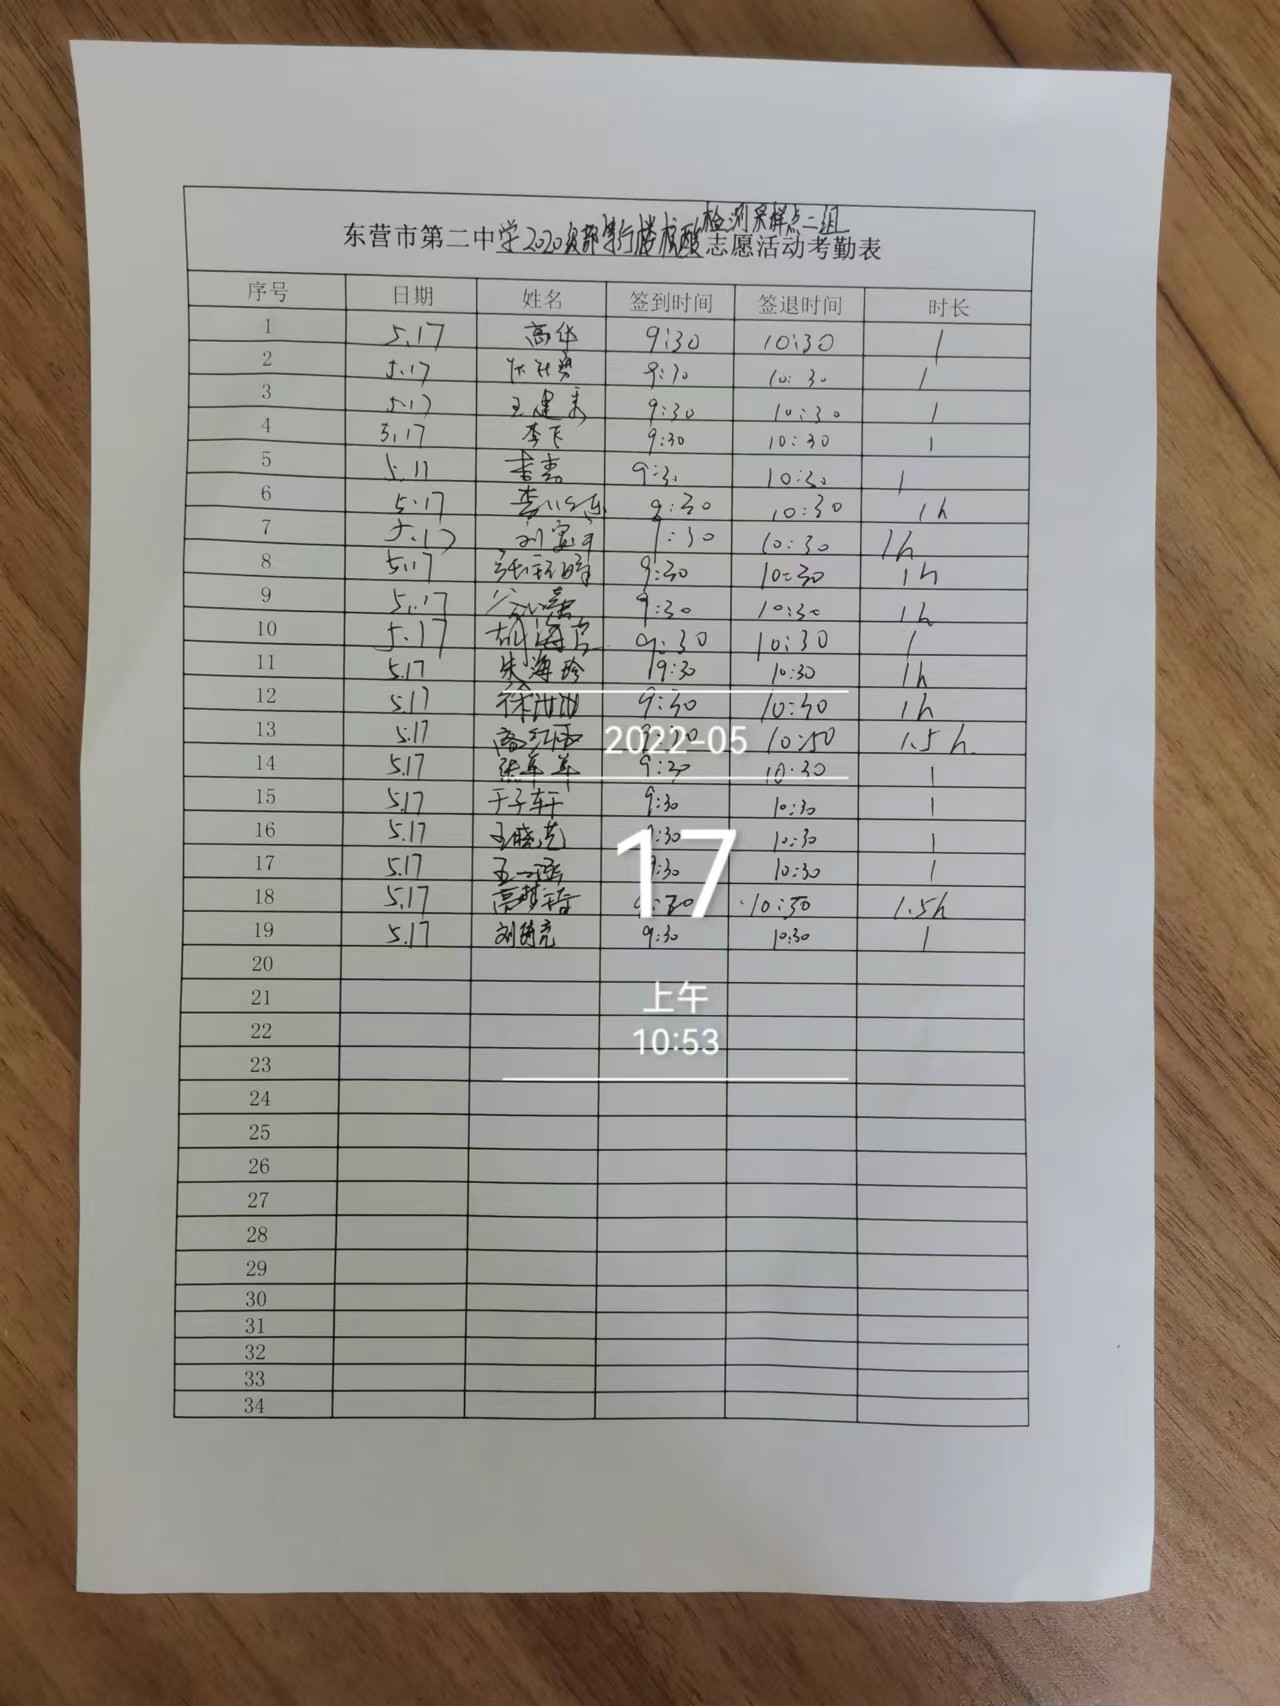 检测采样点二组
东营市第二中学2020级部笃行楼核酸志愿活动考勤表
序号 日期 姓名 签到时间 签退时间 时长
1 5.17 高华 9:30 10:30 1
2 5.17 9:30 10:30 1
3 5.17 王建 9:30 10:30 1
4 5.17 李飞 9:30 10:30 1
5 5.17 9:30 10:30 1
6 5.17 9:30 10:30 1h
7 5.17 9:30 10:30 1h
8 5.17 9:30 10:30 1h
9 5.17 9:30 10:30 1h
10 5.17 胡海 9:30 10:30 1
11 5.17 朱海珍 9:30 10:30 1h
12 5.17 徐 9:30 10:30 1h
13 5.17 10:50 1.5h
14 5.17 9:30 10:30 1
15 5.17 于子轩 9:30 10:30 1
16 5.17 王晓 9:30 10:30 1
17 5.17 王一涵 9:30 10:30 1
18 5.17 高梦 10:50 1.5h
19 5.17 刘 9:30 10:30 1
20
21
22
23
24
25
26
27
28
29
30
31
32
33
34
2022-05
17
上午
10:53